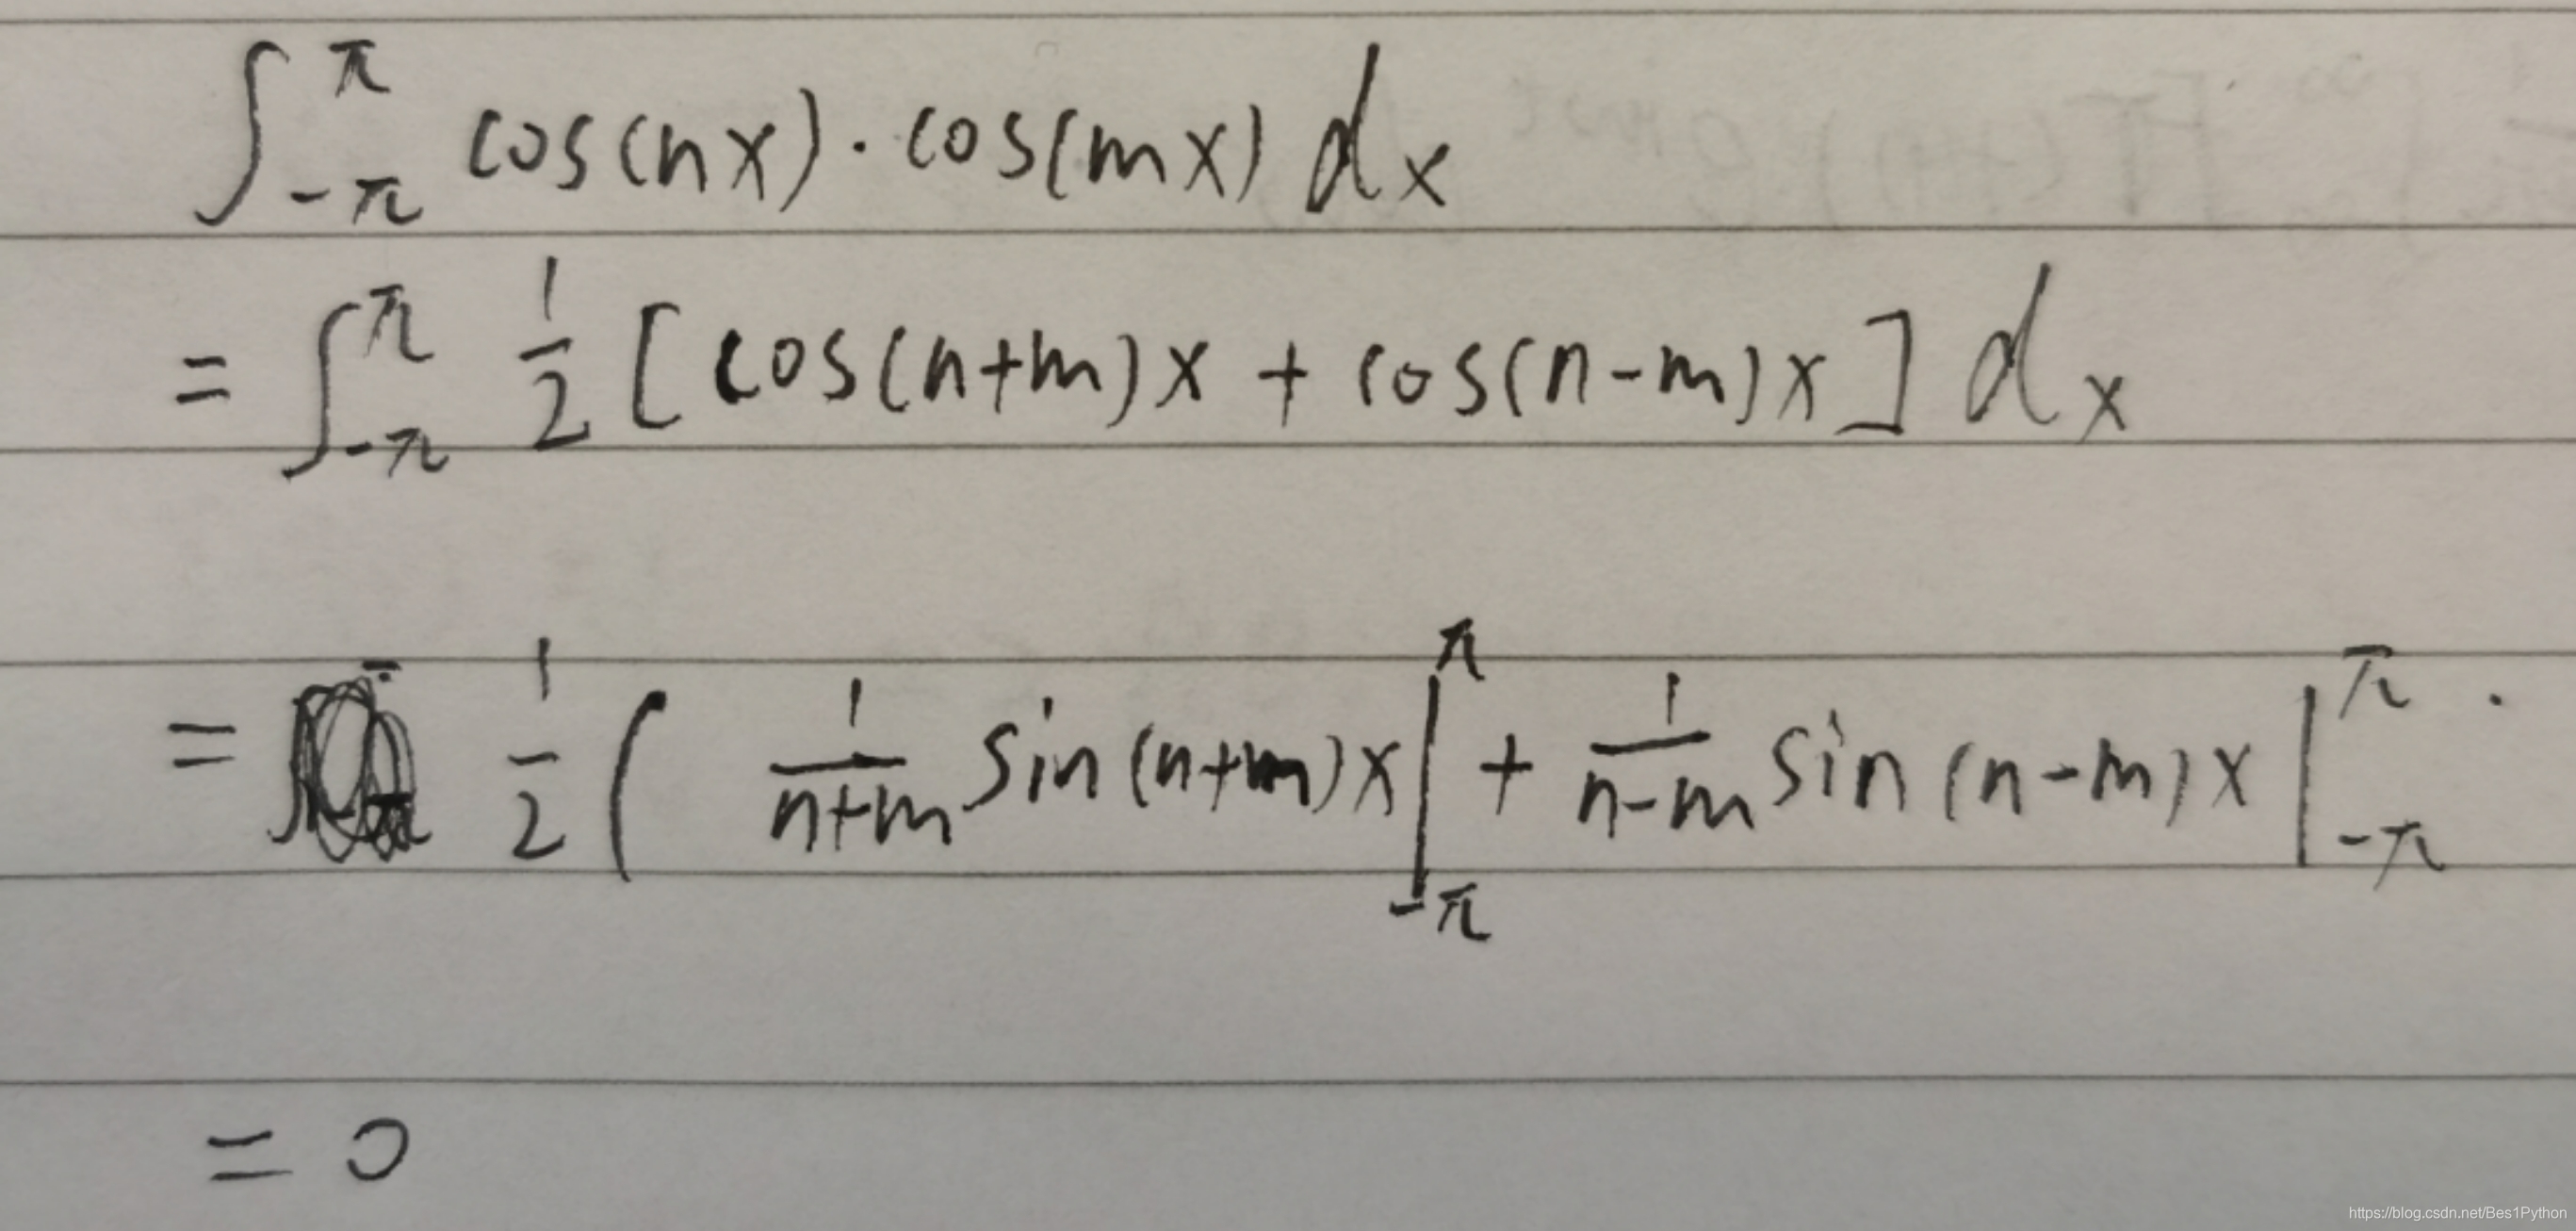 ∫_{-π}^{π} cos(nx)·cos(mx) dx
= ∫_{-π}^{π} 1/2 [cos(n+m)x + cos(n-m)x] dx
= 1/2 ( 1/(n+m) sin(n+m)x |_{-π}^{π} + 1/(n-m) sin(n-m)x |_{-π}^{π} .
= 0
https://blog.csdn.net/Bes1Python